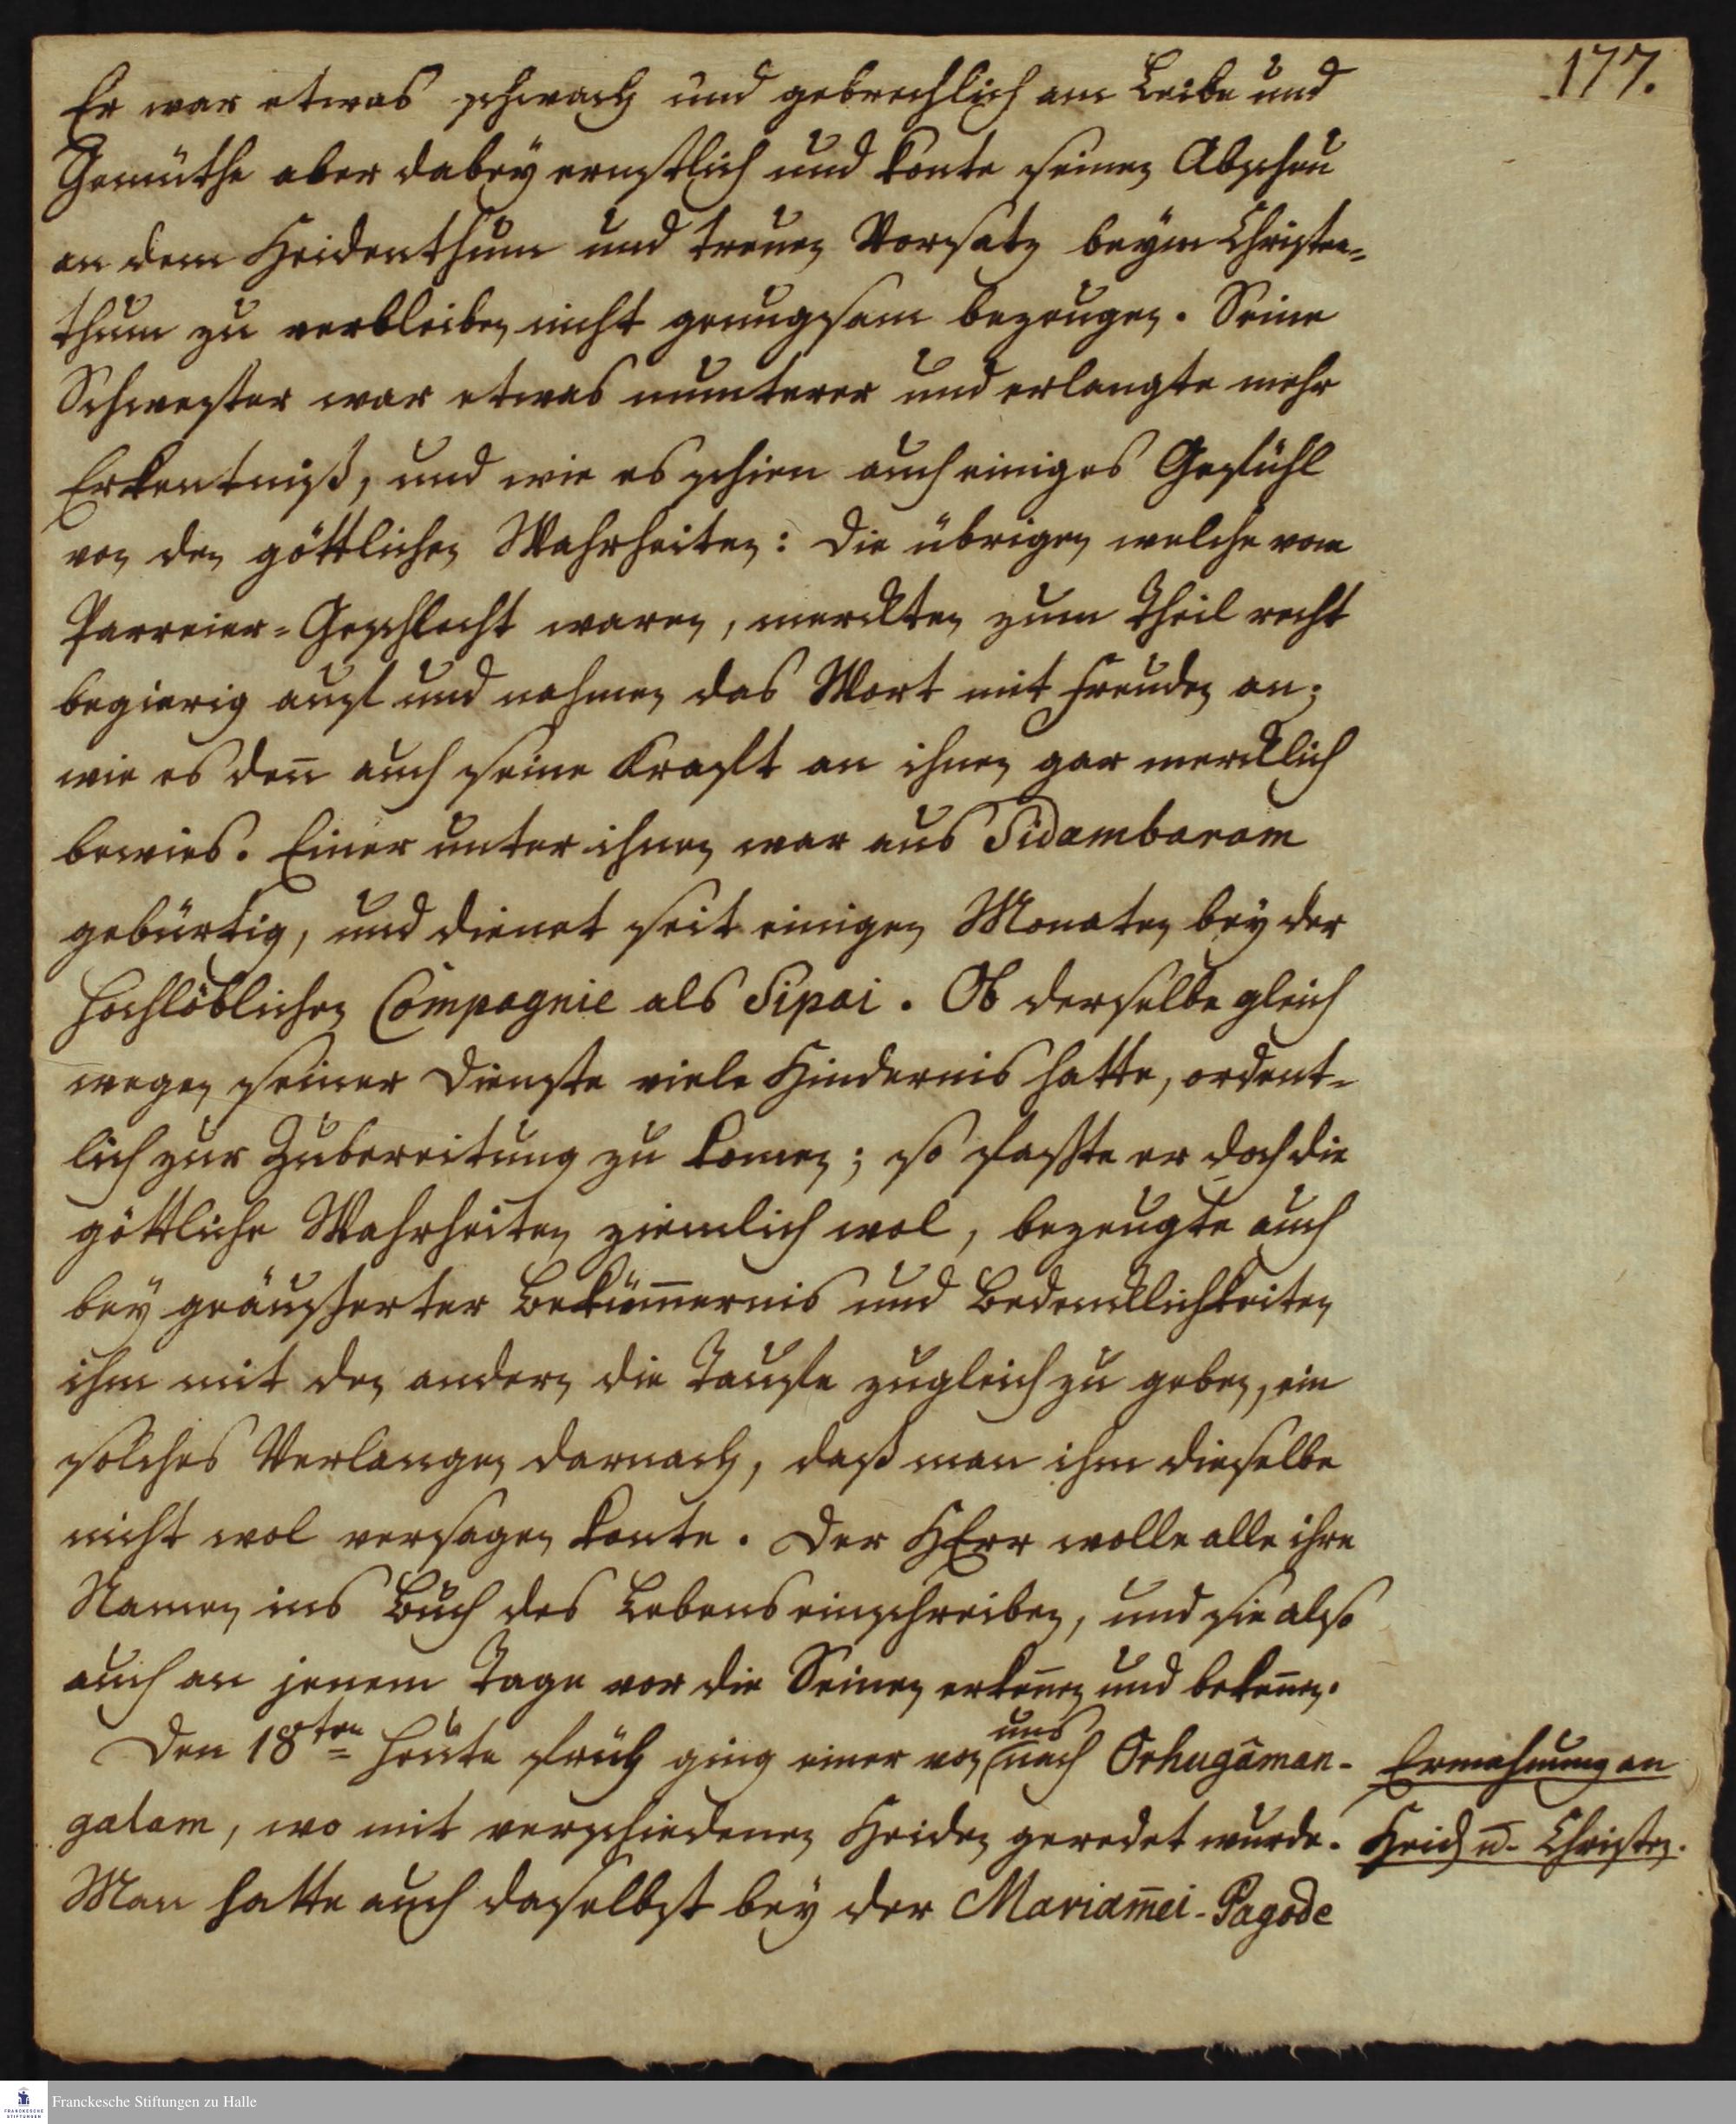 177.
Er war etwas schwach und gebrechlich am Leibe und
Gemüthe aber dabey ernstlich und konte seinen Abscheu
an dem Heidenthum und treuen Vorsatz beym Christen-
thum zu verbleiben nicht genugsam bezeugen. Seine
Schwester war etwas munterer und erlangte mehr
Erkentniß, und wie es schien auch einiges Gefühl
von den göttlichen Wahrheiten: Die übrigen welche vom
Parreier-Geschlecht waren, merckten zum Theil recht
begierig auf und nahmen das Wort mit Freuden an;
wie es den̄ auch seine Kraft an ihnen gar mercklich
bewies. Einer unter ihnen war aus Sidambaram
gebürtig, und dienet seit einigen Monaten bey der
Hochlöblichen Compagnie als Sipai. Ob derselbe gleich
wegen seiner Dienste viele Hindernis hatte, ordent-
lich zur Zubereitung zu komen; so faßte er doch die
göttliche Wahrheiten ziemlich wol, bezeugte auch
bey geäusserter Beküm̄ernis und Bedencklichkeiten
ihm mit den andern die Taufe zugleich zu geben, ein
solches Verlangen darnach, daß man ihm dieselbe
nicht wol versagen konte. Der HErr wolle alle ihre
Namen ins Buch des Lebens einschreiben, und sie also
auch an jenem Tage vor die Seinen erken̄en und beken̄en.
Den 18ten Heute früh ging einer von uns nach Orhugâman-
galam, wo mit verschiedenen Heiden geredet wurde.
Man hatte auch daselbst bey der Mariam̄ei-Pagode
Ermahnung an
Heid. u. Christen.
Franckesche Stiftungen zu Halle
FRANCKESCHE
STIFTUNGEN